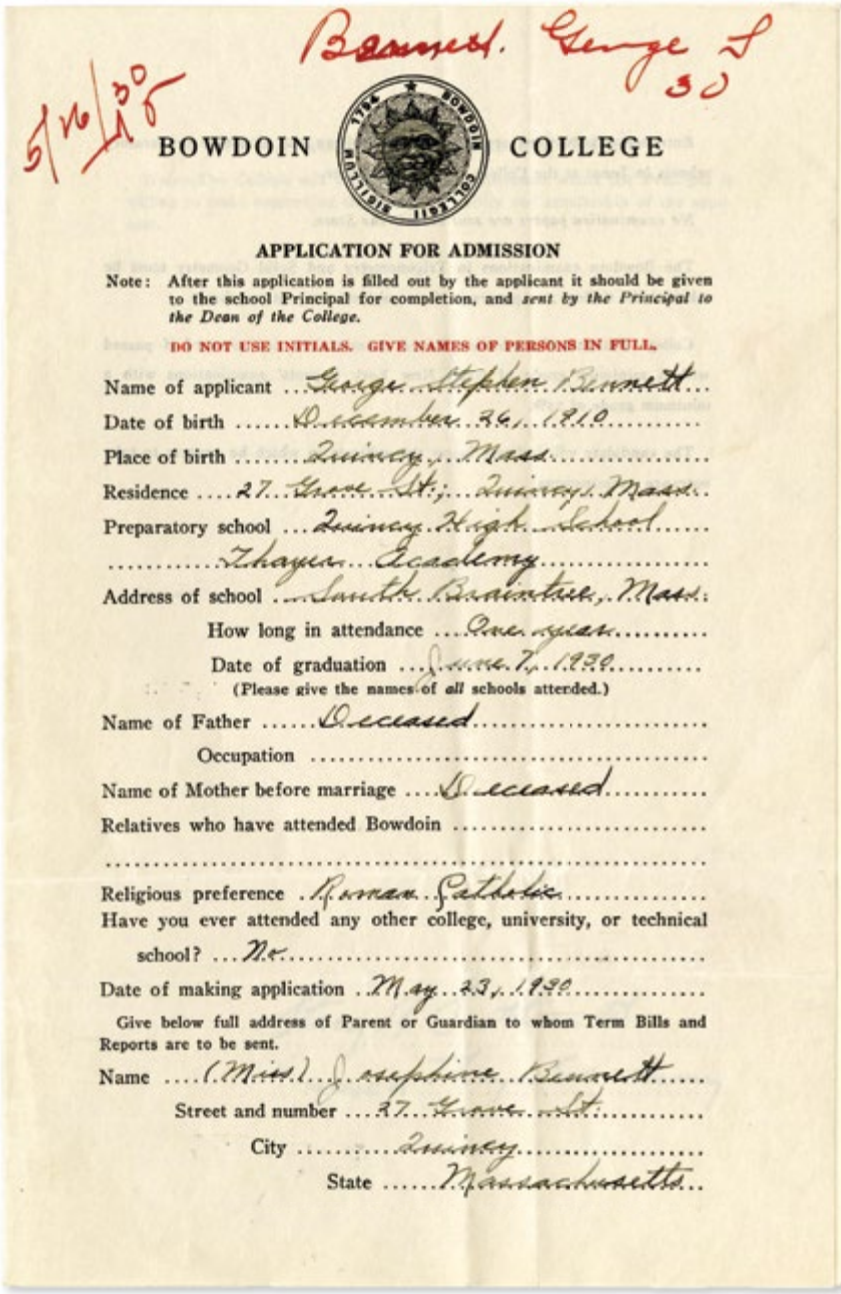 Bennett. George S
30
5/26/30
BOWDOIN COLLEGE
1794 BOWDOIN COLLEGII SIGILLUM
APPLICATION FOR ADMISSION
Note: After this application is filled out by the applicant it should be given
to the school Principal for completion, and sent by the Principal to
the Dean of the College.
DO NOT USE INITIALS. GIVE NAMES OF PERSONS IN FULL.
Name of applicant George Stephen Bennett
Date of birth December 26, 1910
Place of birth Quincy, Mass
Residence 27 Grove St; Quincy, Mass.
Preparatory school Quincy High School
Thayer Academy
Address of school South Braintree, Mass.
How long in attendance One year
Date of graduation June 7, 1930
(Please give the names of all schools attended.)
Name of Father Deceased
Occupation
Name of Mother before marriage Deceased
Relatives who have attended Bowdoin
Religious preference Roman Catholic
Have you ever attended any other college, university, or technical
school? No
Date of making application May 23, 1930
Give below full address of Parent or Guardian to whom Term Bills and
Reports are to be sent.
Name (Miss) Josephine Bennett
Street and number 27 Grove St.
City Quincy
State Massachusetts